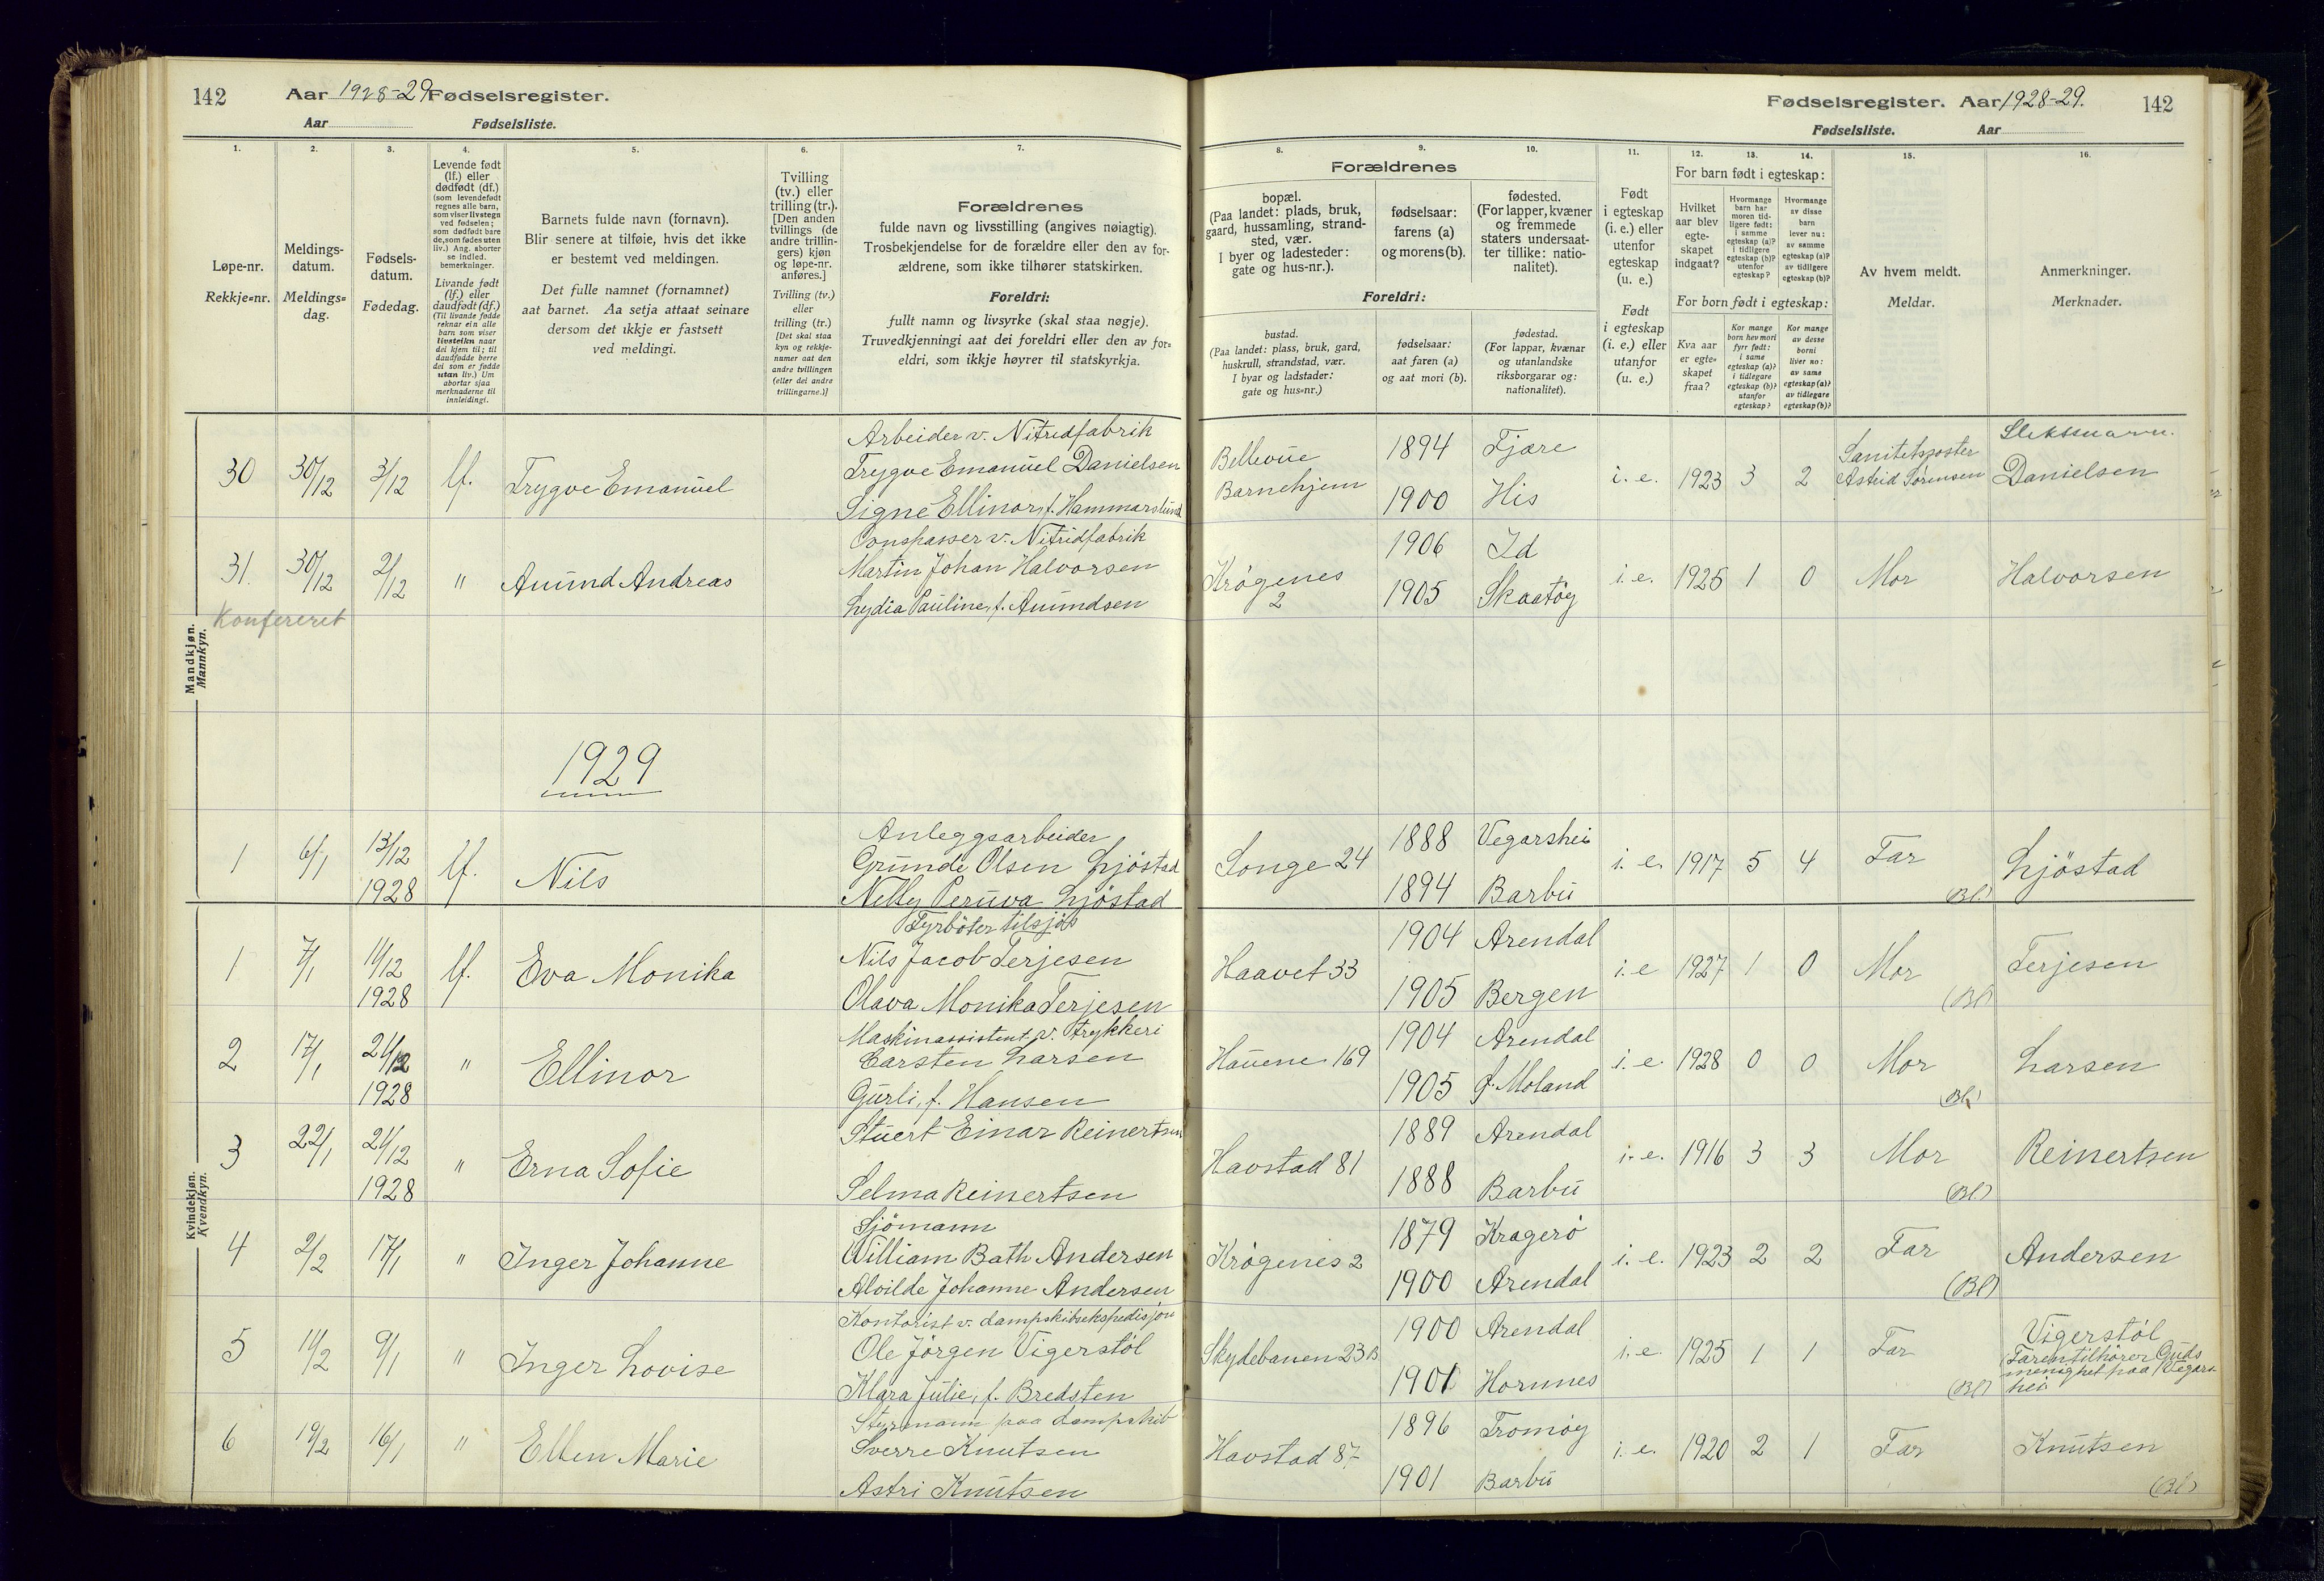 142 Aar 1928-29 Fødselsregister.
Aar Fødselsliste.
Fødselsregister. Aar 1928-29. 142
Fødselsliste. Aar
1. 2. 3. 4. 5. 6. 7.
Løpe-nr.
Rekkje=nr.
Meldings-
datum.
Meldings=
dag.
Fødsels-
datum.
Fødedag.
Levende født
(lf.) eller
dødfødt (df.)
(som levendefødt
regnes alle barn,
som viser livstegn
ved fødselen;
som dødfødt bare
de, som fødes uten
liv.) Ang. aborter
se indled.
bemerkninger.
Livande født
(lf.) eller
daudfødt (df.)
(Til livande fødde
reknar ein alle
barn som viser
livsteikn naar
dei kjem til; til
daudfødde berre
dei som er fødde
utan liv.) Um
abortar sjaa
merknaderne til
innleidingi.
Barnets fulde navn (fornavn).
Blir senere at tilføie, hvis det ikke
er bestemt ved meldingen.
Det fulle namnet (fornamnet)
aat barnet. Aa setja attaat seinare
dersom det ikkje er fastsett
ved meldingi.
Tvilling
(tv.) eller
trilling (tr.).
[Den anden
tvillings (de
andre trillin-
gers) kjøn
og løpe-nr.
anføres.]
Tvilling (tv.)
eller
trilling (tr.)
[Det skal staa
kyn og rekkje-
numer aat den
andre tvillingen
(eller dei andre
trillingarne.)]
Forældrenes
fulde navn og livsstilling (angives nøiagtig).
Trosbekjendelse for de forældre eller den av for-
ældrene, som ikke tilhører statskirken.
Foreldri:
fullt namn og livsyrke (skal staa nøgje).
Truvedkjenningi aat dei foreldri eller den av for=
eldri, som ikkje høyrer til statskyrkja.
8. 9. 10. 11. 12. 13. 14. 15. 16.
Forældrenes
bopæl.
(Paa landet: plads, bruk,
gaard, hussamling, strand-
sted, vær.
I byer og ladesteder:
gate og hus-nr.).
fødselsaar:
farens (a)
og morens (b).
fødested.
(For lapper, kvæner
og fremmede
staters undersaat-
ter tillike: natio-
nalitet).
Foreldri:
bustad.
(Paa landet: plass, bruk, gard,
huskrull, strandstad, vær.
I byar og ladstader:
gate og hus=nr.)
fødselsaar:
aat faren (a)
og aat mori (b).
fødestad.
(For lappar, kvænar
og utanlandske
riksborgarar og:
nationalitet).
Født
i egteskap
(i. e.) eller
utenfor
egteskap
(u. e.)
Født
i egteskap
(i. e.) eller
utanfor
(u. e.)
For barn født i egteskap:
Hvilket
aar blev
egte-
skapet
indgaat?
Hvormange
barn har
moren tid-
ligere født:
i samme
egteskap (a)?
i tidligere
egteskap (b)?
utenfor
egteskap?
Hvormange
av disse
barn
lever nu:
av samme
egteskap (a)?
av tidligere
egteskap (b)?
For born født i egteskap:
Kva aar
er egte=
skapet
fraa?
Kor mange
born hev mori
fyrr født:
i same
egteskap (a)?
i tidlegare
egteskap (b)?
utanfor
egteskap?
Kor mange
av desse
borni
liver no:
av same
egteskap (a)?
av tidlegare
egteskap (b)?
Av hvem meldt.
Meldar.
Anmerkninger.
Merknader.
Mandkjøn.
Mannkyn.
Arbeider v. Nitridfabrik
30 30/12 3/12 lf. Trygve Emanuel Trygve Emanuel Danielsen
Signe Ellinor, f. Hammarslund
Bellevue 1894 Fjære
Barnehjem 1900 His i. e. 1923 3 2
Sanitetssøster
Astrid Sørensen
Slektsnavn.
Danielsen
Ovnspasser v. Nitridfabrik
31. 30/12 2/12 " Amund Andreas Martin Johan Halvorsen
Lydia Pauline, f. Amundsen
Krøgenes
2
1906 Id
1905 Skaatøy i. e. 1925 1 0 Mor Halvorsen
Konfereret
1929
Anleggsarbeider
1 6/1 13/12 1928 lf. Nils Grunde Olsen Ljøstad
Nelly Peruva Ljøstad
Songe 24 1888 Vegarshei
1894 Barbu i. e. 1917 5 4 Far (Bl.) Ljøstad
Kvindekjøn.
Kvendkyn.
Fyrbøter tilsjøs
1 7/1 11/12 1928 lf. Eva Monika Nils Jacob Terjesen
Olava Monika Terjesen
Haavet 33 1904 Arendal
1905 Bergen i. e 1927 1 0 Mor (Bl) Terjesen
Maskinassistent v. trykkeri
2 17/1 21/12 1928 " Ellinor Carsten Larsen
Gurli, f. Hansen
Hauene 169 1904 Arendal
1905 Ø. Moland i. e. 1928 0 0 Mor (Bl.) Larsen
3 22/1 21/12 1928 " Erna Sofie Stuert Einar Reinertsen
Selma Reinertsen
Havstad 81 1889 Arendal
1888 Barbu i. e. 1916 3 3 Mor (Bl.) Reinertsen
Sjömann
4 2/2 17/1 " Inger Johanne William Bath Andersen
Alvilde Johanne Andersen
Krøgenes 2 1879 Kragerö
1900 Arendal i. e. 1923 2 2 Far (Bl) Andersen
Kontorist v. dampskibsekspedisjon
5 11/2 9/1 " Inger Lovise Ole Jörgen Vigerstöl
Klara Julie, f. Bredsten
Skydebanen 23 B 1900 Arendal
1901 Hornnes i. e. 1925 1 1 Far (Bl) Vigerstöl
Faren tilhører Guds
menighet paa Vegars-
hei
Styrmann paa dampskib
6 19/2 16/1 " Ellen Marie Sverre Knutsen
Astri Knutsen
Havstad 87. 1896 Tromøy
1901 Barbu i. e. 1920 2 1 Far Knutsen
(Bl)